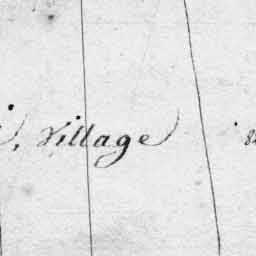 , Village